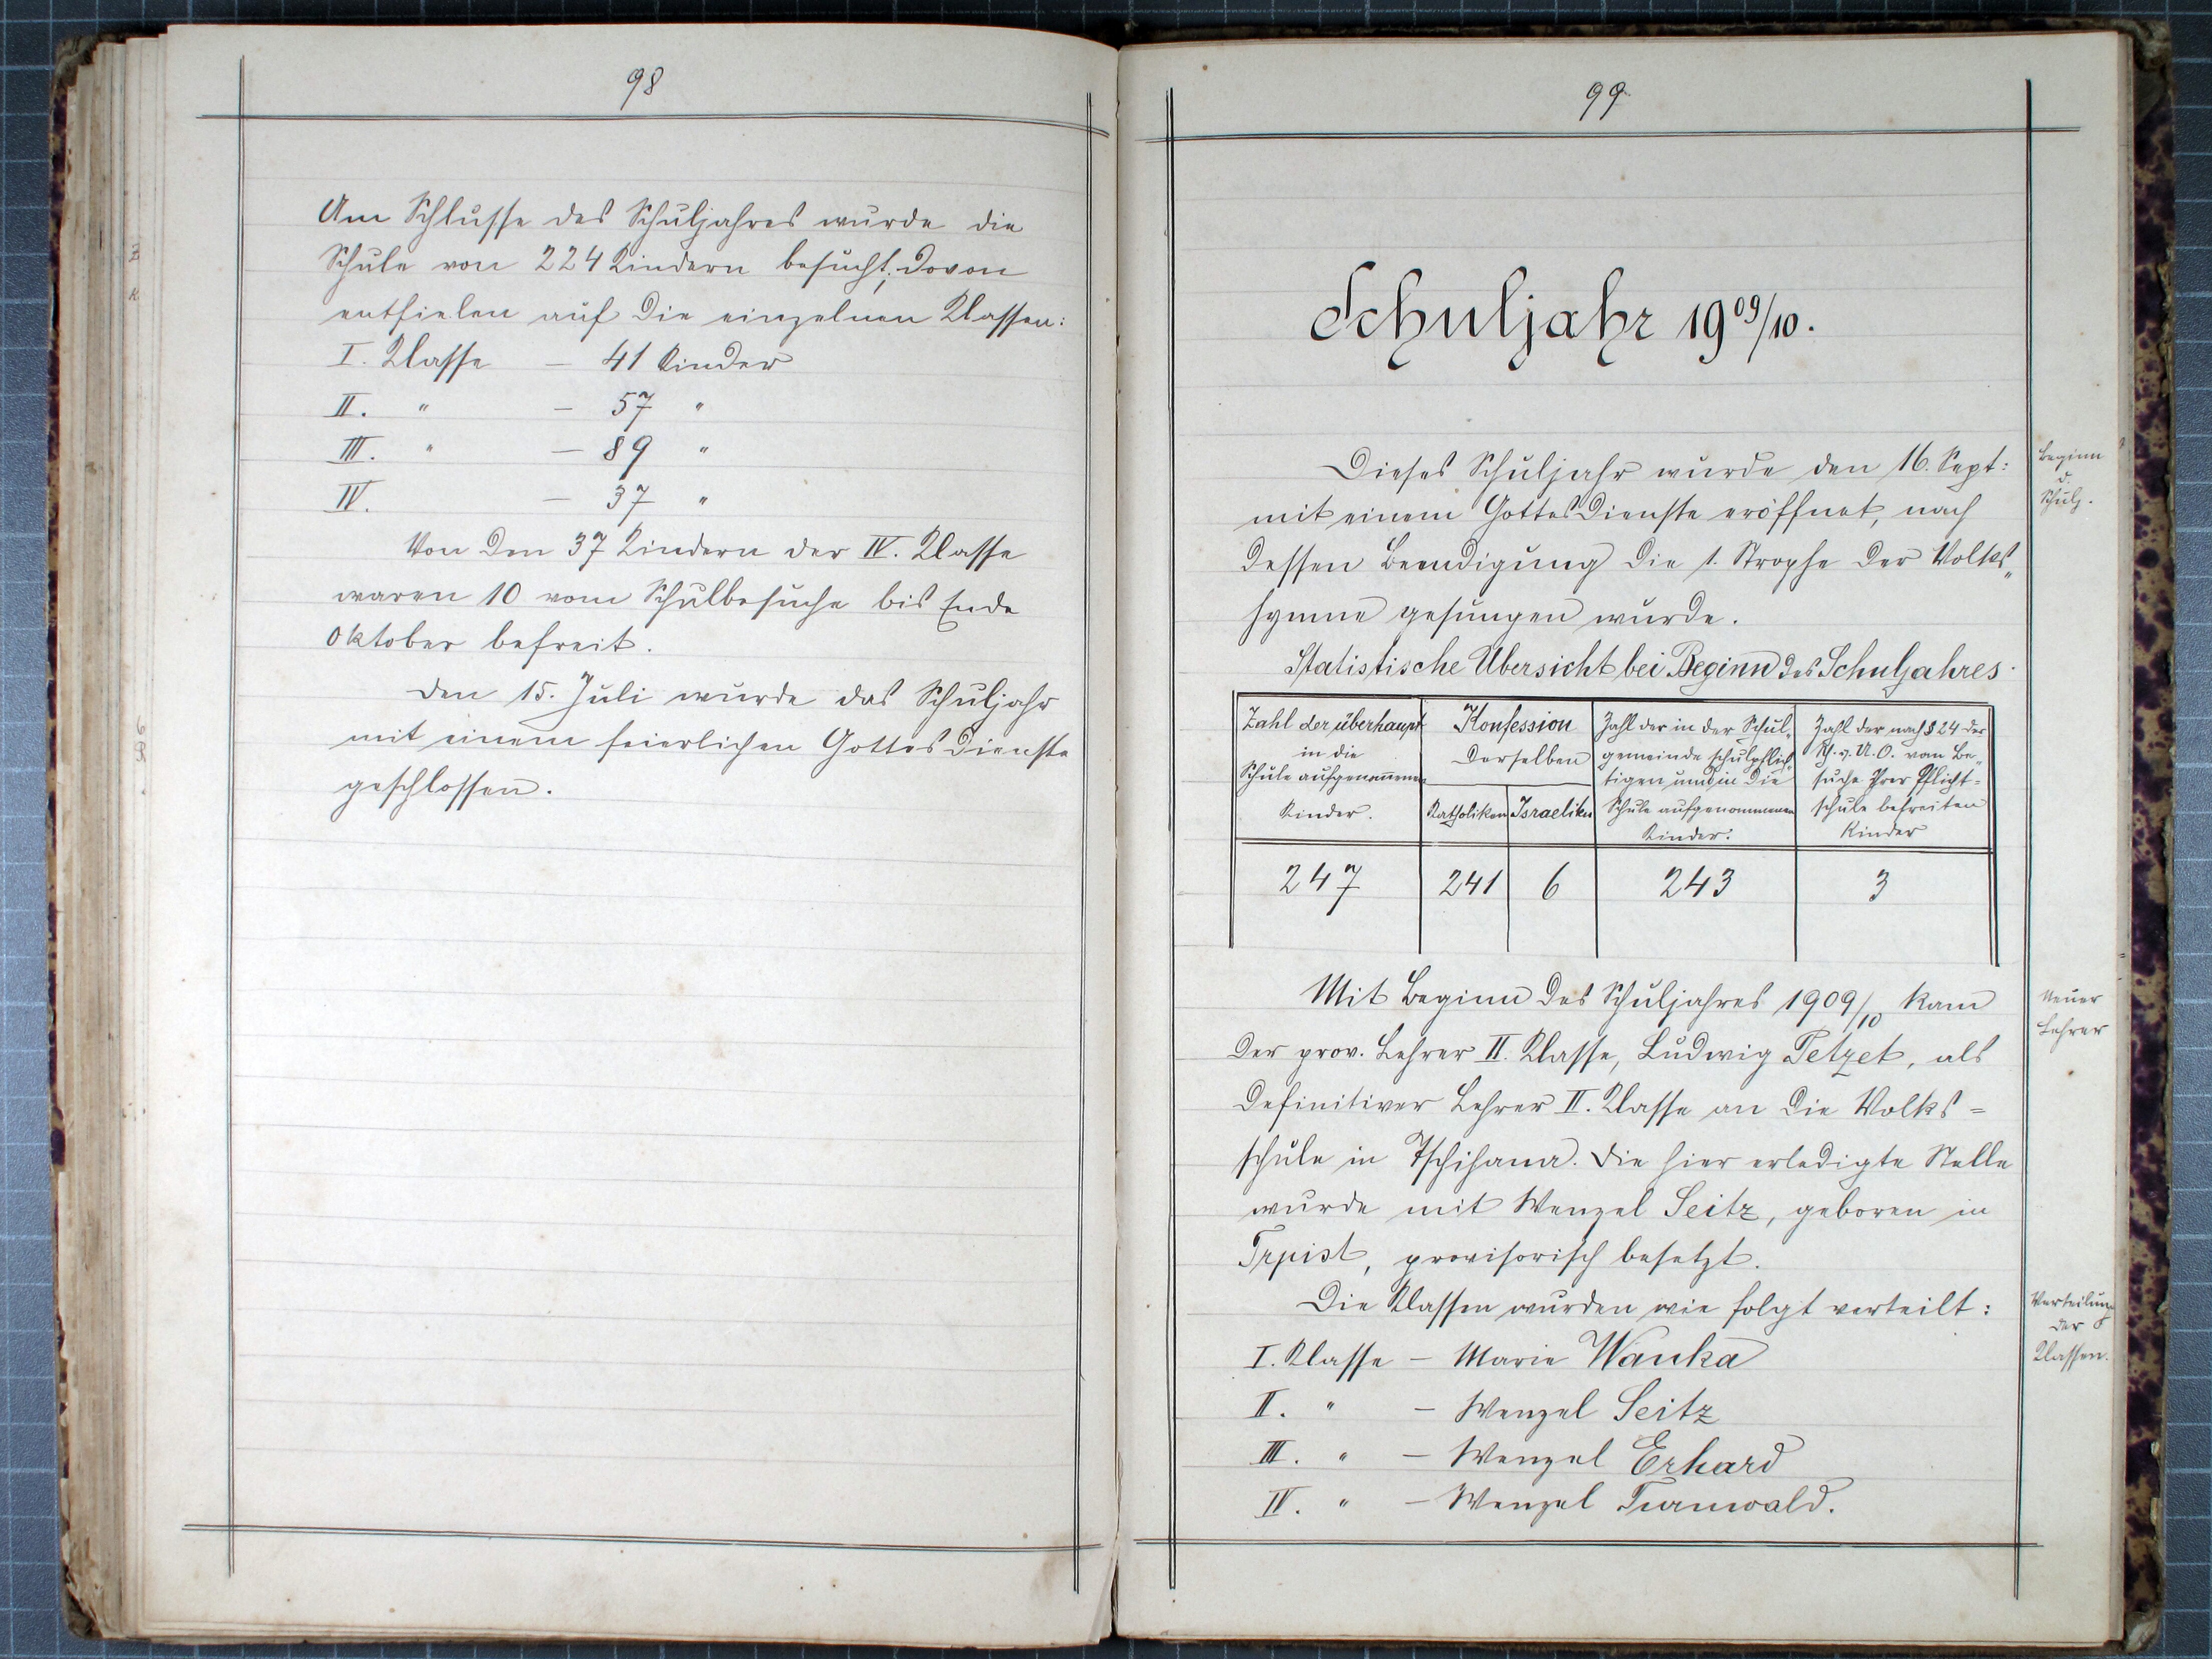 98
Am Schlusse des Schuljahres wurde die
Schule von 224 Kindern besucht; davon
entfielen auf die einzelnen Klassen:
I. Klasse – 41 Kinder
II. " – 57 "
III. " – 89 "
IV. – 37 "
Von den 37 Kindern der IV. Klasse
waren 10 vom Schulbesuche bis Ende
Oktober befreit.
Den 15. Juli wurde das Schuljahr
mit einem feierlichen Gottesdienste
geschlossen.
99
Schuljahr 1909/10.
Dieses Schuljahr wurde den 16. Sept:
mit einem Gottesdienste eröffnet, nach
dessen Beendigung die 1. Strophe der Volks„
hymne gesungen wurde.
Beginn
d.
Schulj.
Statistische Übersicht bei Beginn des Schuljahres.
Zahl der überhaupt
in die
Schule aufgenommenen
Kinder.
Konfession
derselben
Katholiken
Israeliten
Zahl der in der Schul„
gemeinde schulpflich„
tigen und in die
Schule aufgenommenen
Kinder.
Zahl der nach § 24 der
Sch. u. U. O. vom Be„
suche ihrer Pflicht-
schule befreiten
Kinder
247 241 6 243 3
Mit Beginn des Schuljahres 1909/10 kam
der prov. Lehrer II. Klasse, Ludwig Petzet, als
definitiver Lehrer II. Klasse an die Volks=
schule in Tschihana. Die hier erledigte Stelle
wurde mit Wenzel Seitz, geboren in
Trpist, provisorisch besetzt.
Neuer
Lehrer
Die Klassen wurden wie folgt verteilt:
I. Klasse – Marie Wanka
II. " – Wenzel Seitz
III. " – Wenzel Erhard
IV. " – Wenzel Turnwald.
Verteilung
der
Klassen.